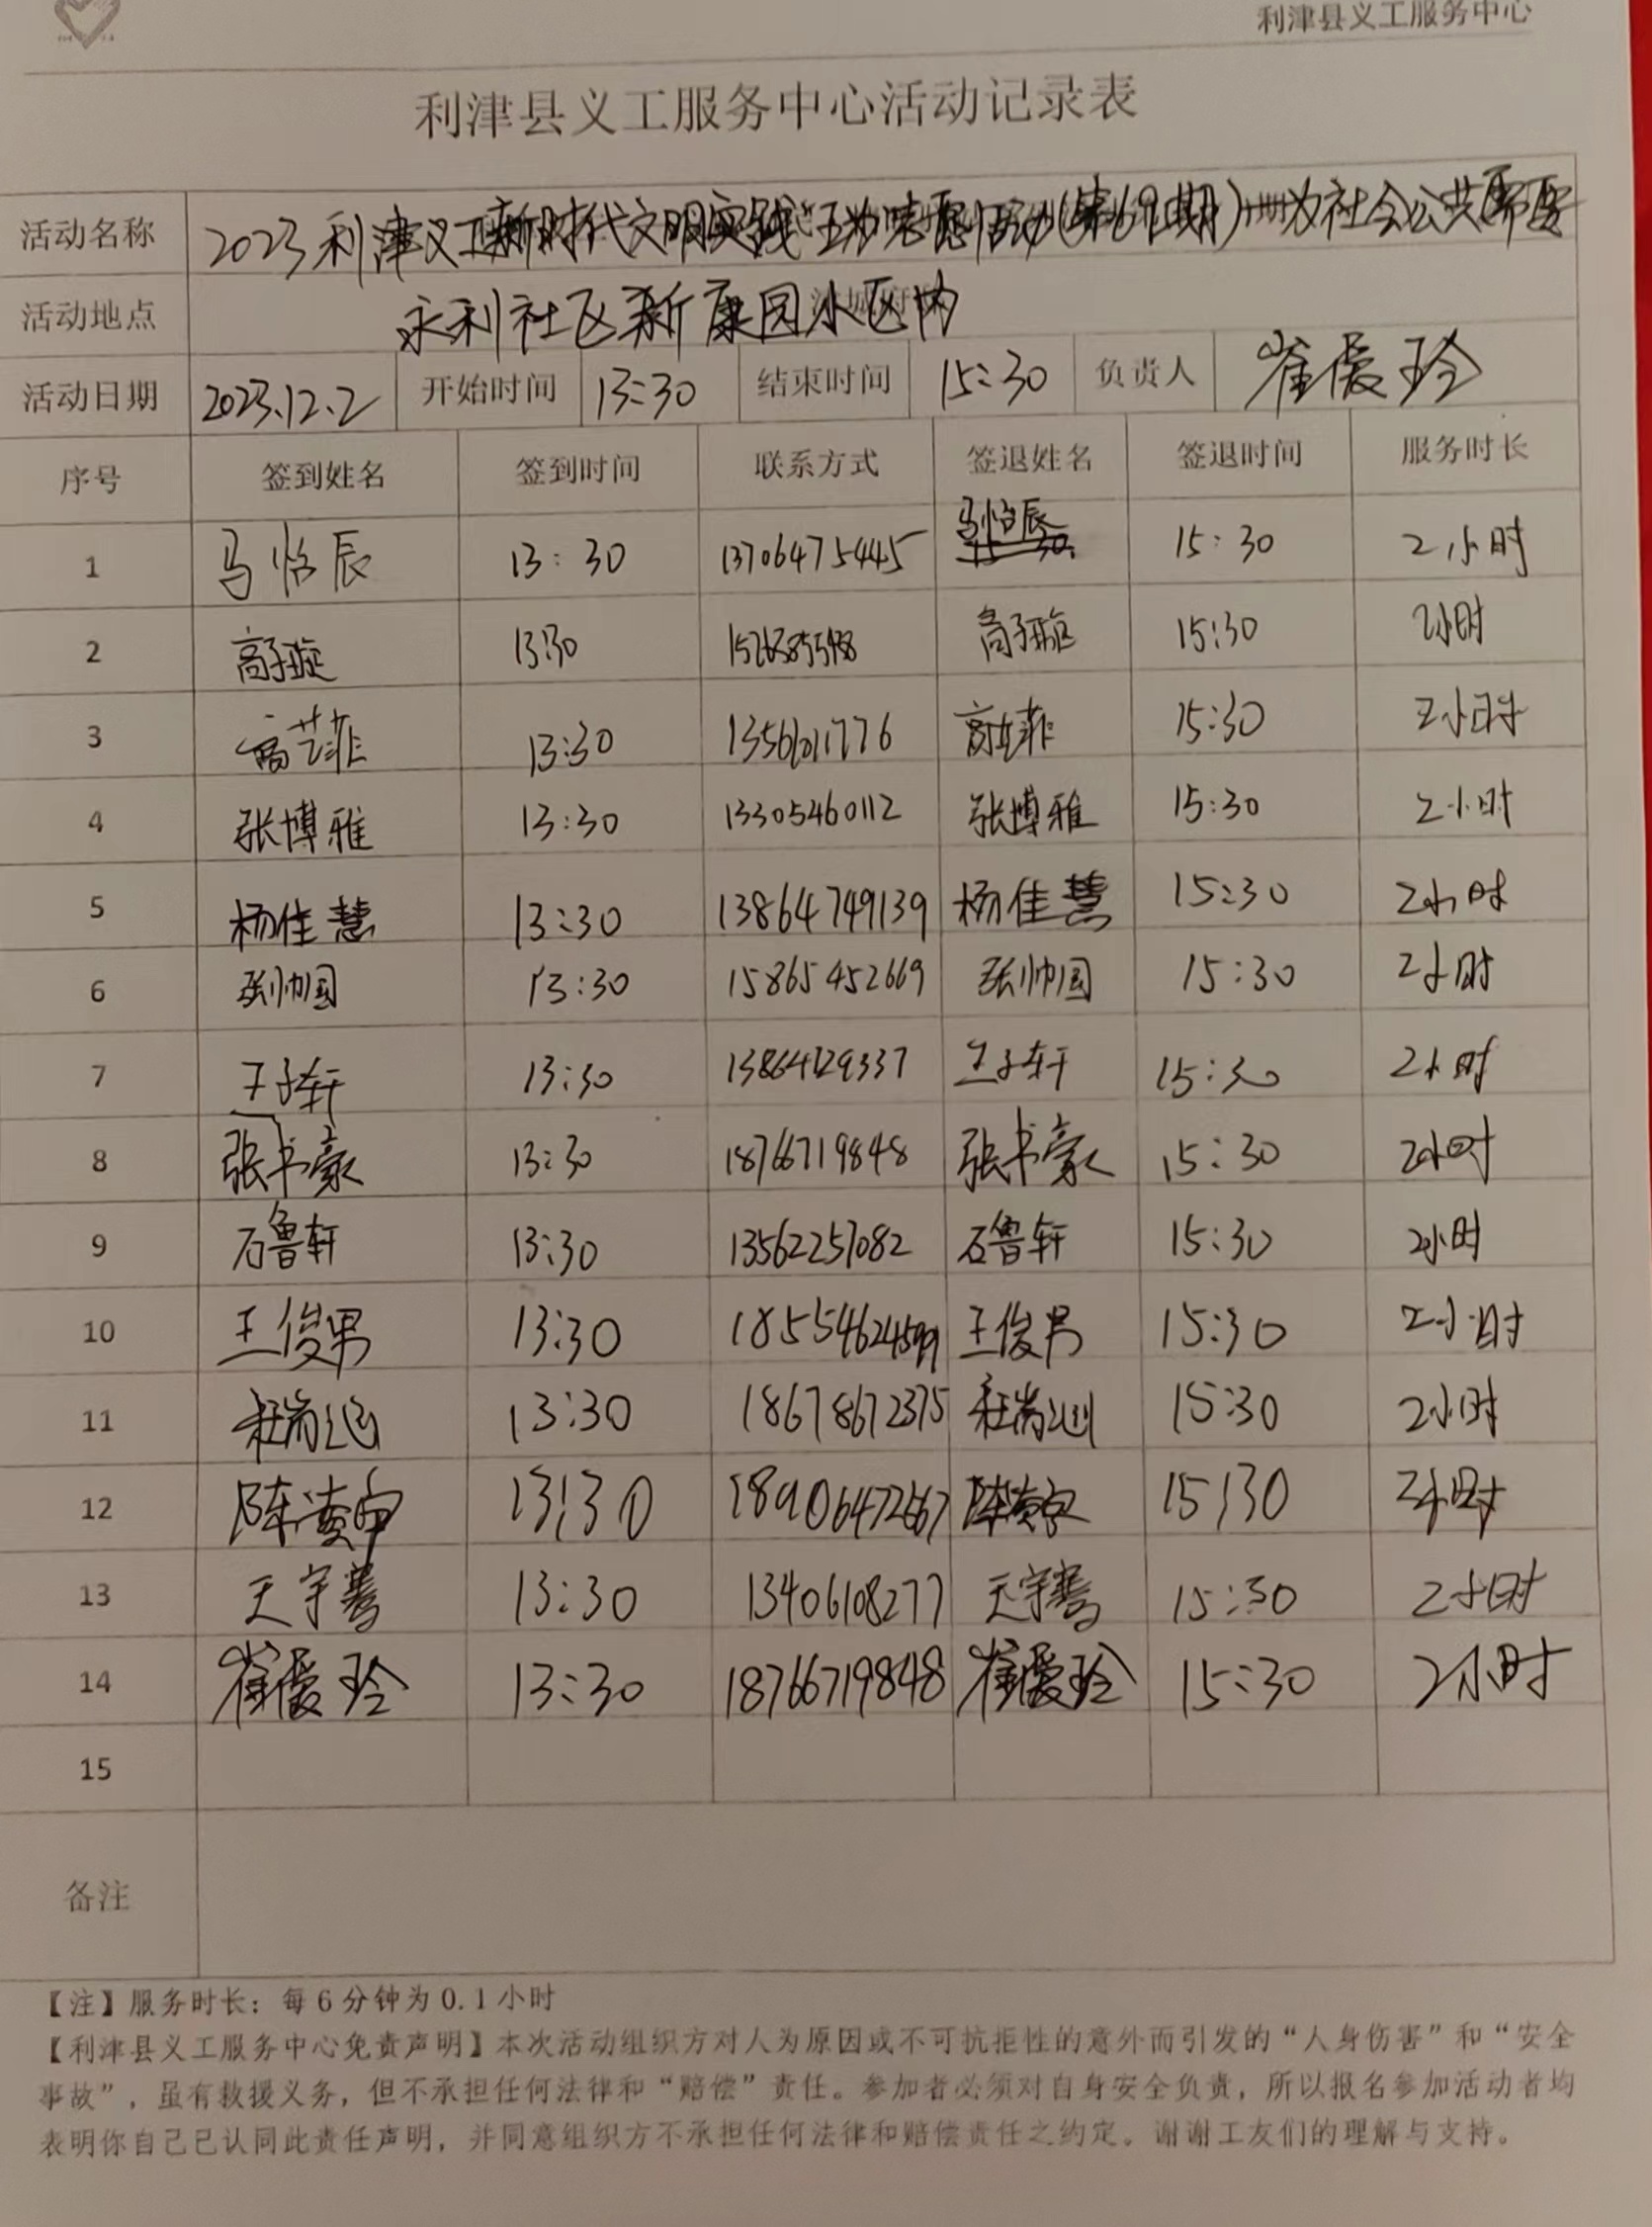 利津县义工服务中心
利津县义工服务中心活动记录表
活动名称 2023利津义工新时代文明实践 活动(第69期) 为社会公共
活动地点 永利社区新康园小区内
活动日期 2023.12.2 开始时间 13:30 结束时间 15:30 负责人 崔爱玲
序号 签到姓名 签到时间 联系方式 签退姓名 签退时间 服务时长
1 马怡辰 13:30 13706475445 马怡辰 15:30 2小时
2 高子璇 13:30 高子璇 15:30 2小时
3 高艺菲 13:30 高艺菲 15:30 2小时
4 张博雅 13:30 13305460112 张博雅 15:30 2小时
5 杨佳慧 13:30 13864749139 杨佳慧 15:30 2小时
6 张帅国 13:30 15865452669 张帅国 15:30 2小时
7 王子轩 13:30 王子轩 15:30 2小时
8 张书豪 13:30 18766719848 张书豪 15:30 2小时
9 石鲁轩 13:30 13562257082 石鲁轩 15:30 2小时
10 王俊男 13:30 18554624599 王俊男 15:30 2小时
11 13:30 18678672375 15:30 2小时
12 13:30 18906472667 15:30 2小时
13 13:30 13406108277 15:30 2小时
14 崔爱玲 13:30 18766719848 崔爱玲 15:30 2小时
15
备注
【注】服务时长：每6分钟为0.1小时
【利津县义工服务中心免责声明】本次活动组织方对人为原因或不可抗拒性的意外而引发的“人身伤害”和“安全
事故”，虽有救援义务，但不承担任何法律和“赔偿”责任。参加者必须对自身安全负责，所以报名参加活动者均
表明你自己已认同此责任声明，并同意组织方不承担任何法律和赔偿责任之约定。谢谢工友们的理解与支持。